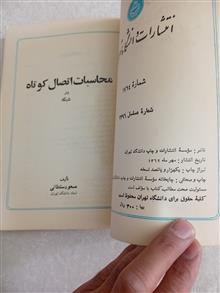 انتشارات دانشگاه
شمارهٔ ۱۷۹۴
شمارهٔ مسلسل
ناشر : مؤسسهٔ انتشارات و چاپ دانشگاه تهران
تاریخ انتشار : مهر ماه ۱۳۶۲
تیراژ چاپ : یکهزار و پانصد نسخه
چاپ و صحافی : چاپخانه مؤسسهٔ انتشارات و چاپ
مسئولیت صحت مطالب کتاب با مؤلف است
کلیهٔ حقوق برای دانشگاه تهران محفوظ است
بها : ۳۰۰ ریال
محاسبات اتصال کوتاه
در
شبکه
تألیف
مسعود سلطانی
استاد دانشگاه تهران